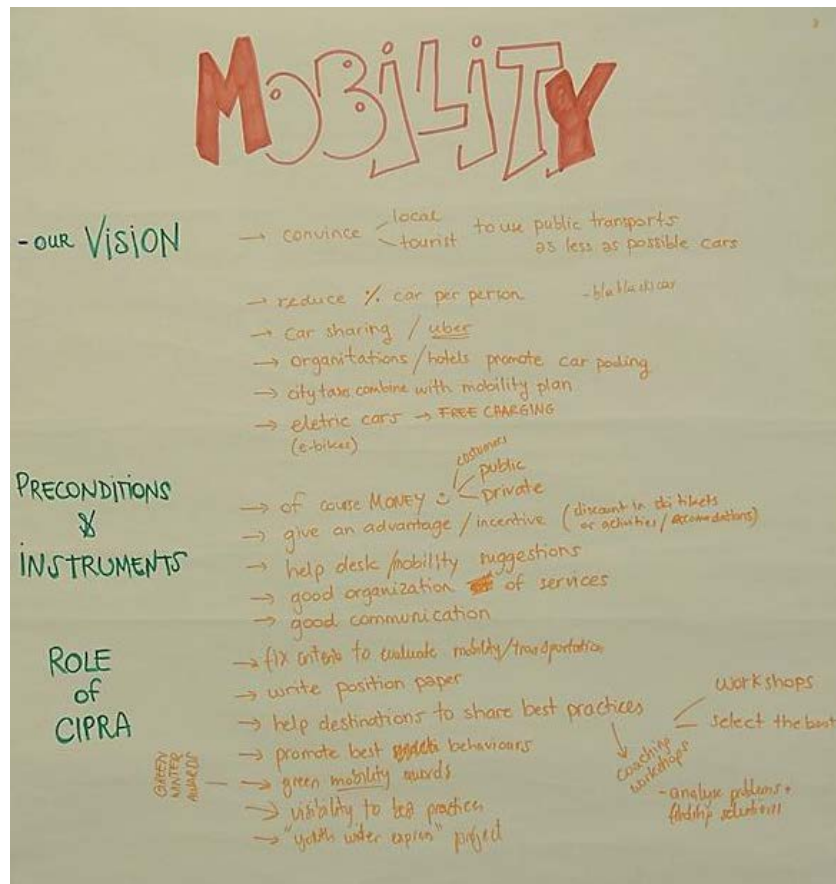 MOBILITY
- OUR VISION
→ convince local
tourist
to use public transports
as less as possible cars
→ reduce % car per person
→ car sharing / uber
→ organitations / hotels promote car pooling
→ city taxs combine with mobility plan
→ eletric cars → FREE CHARGING
(e-bikes)
PRECONDITIONS
&
INSTRUMENTS
→ of course MONEY
costumers
public
private
→ give an advantage / incentive (discount in ski tikets
or activities / accomodations)
→ help desk / mobility suggestions
→ good organization of services
→ good communication
ROLE
of
CIPRA
→ fix criteria to evaluate mobility/transportation
→ write position paper
→ help destinations to share best practices
workshops
select the best
coaching
workshops
- analyse problems +
solutions
→ promote best behaviours
GREEN
WINTER
AWARDS
→ green mobility awards
→ visibility to best practices
→ "youth project